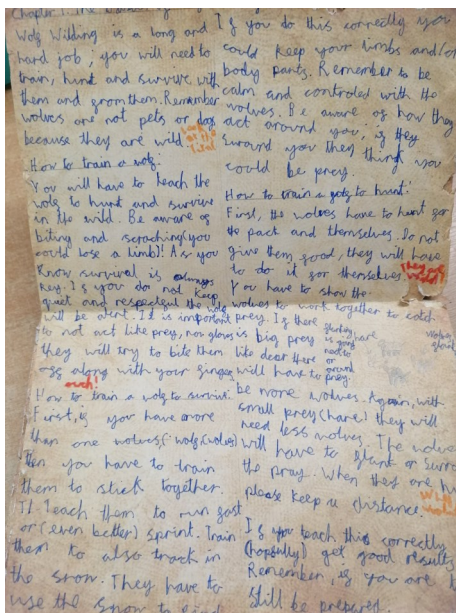 Chapter 1. The
Wolf Wilding is a long and
hard job, you will need to
train, hunt and survive with
them and from them. Remember
wolves are not pets or dogs
because they are wild.
look
at the
title
How to train a wolf.
You will have to teach the
wolf to hunt and survive
in the wild. Be aware of
biting and scraching (you
could lose a limb)! As you
Know survival is always
key. If you do not keep
quiet and respectful the wolf
will be alert. It is important
to not act like prey, nor gloves
they will try to bite them
off along with your finger
ouch!
How to train a wolf to survive.
First, if you have more
than one wolves (wolf, wolves)
then you have to train
them to stick together.
Teach them to run fast
or (even better) sprint. Train
them to also track in
the snow. They have to
use the snow to find
If you do this correctly you
could keep your limbs and/or
body parts. Remember to be
calm and controled with the
wolves. Be aware of how they
act around you, if they
suround you they think you
could be prey.
How to train a wolf to hunt.
First, the wolves have to hunt for
the pact and themselves. Do not
give them food, they will have
to do it for themselves.
they are
wild
You have to show the
wolves to work together to catch
prey. If there
is big prey
like dear there
will have to
be more wolves. Again, with
small prey (hare) they will
need less wolves. The wolves
will have to flank or surro
the pray. When they are hu
please keep u distance.
Wild
wolves
If you teach this correctly
(hopefully) get good results
Remember, if you are t
still be prepared
flanking
is going
next to
or
around
prey.
hare
wolves